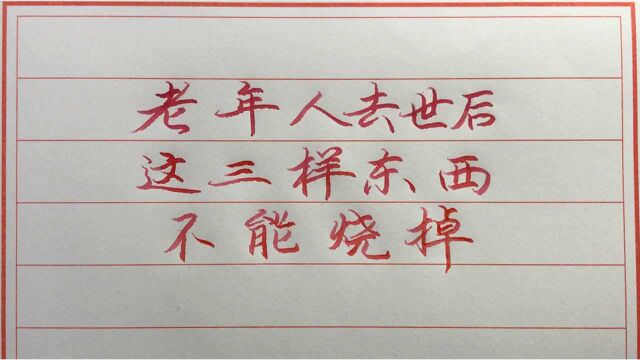 老年人去世后
这三样东西
不能烧掉